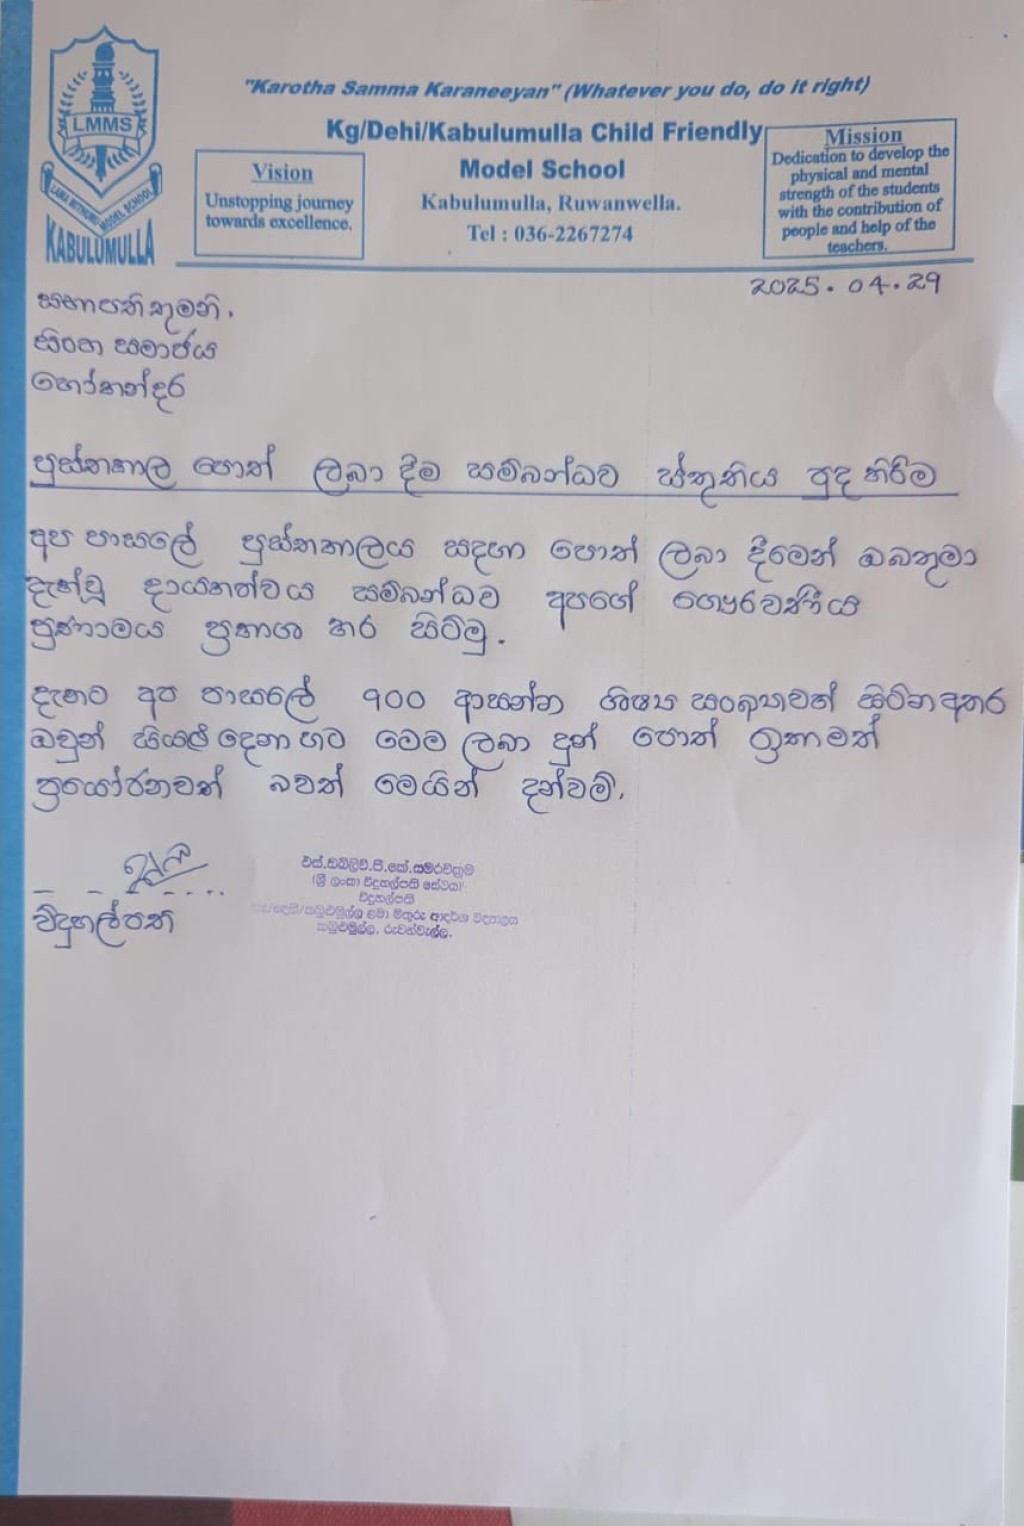 LMMS
LAMA MITHURU MODEL SCHOOL
KABULUMULLA
"Karotha Samma Karaneeyan" (Whatever you do, do it right)
Kg/Dehi/Kabulumulla Child Friendly
Model School
Kabulumulla, Ruwanwella.
Tel : 036-2267274
Vision
Unstopping journey
towards excellence.
Mission
Dedication to develop the
physical and mental
strength of the students
with the contribution of
people and help of the
teachers.
2025. 04. 29
සභාපතිතුමනි.
සිංහ සමාජය
හෝකන්දර
පුස්තකාල පොත් ලබා දීම සම්බන්ධව ස්තුතිය පුද කිරීම
අප පාසලේ පුස්තකාලය සඳහා පොත් ලබා දීමෙන් ඔබතුමා
දැක්වූ දායකත්වය සම්බන්ධව අපගේ ගෞරවණීය
ප්‍රණාමය ප්‍රකාශ කර සිටිමු.
දැනට අප පාසලේ 900 ආසන්න ශිෂ්‍ය සංඛ්‍යාවක් සිටින අතර
ඔවුන් සියළු දෙනාහට මෙම ලබා දුන් පොත් ඉතාමත්
ප්‍රයෝජනවත් බවත් මෙයින් දන්වමි.
විදුහල්පති
එස්.ඩබ්ලිව්.පී.කේ.සමරවික්‍රම
(ශ්‍රී ලංකා විදුහල්පති සේවය)
විදුහල්පති
කෑ/දෙහි/කබුළුමුල්ල ළමා මිතුරු ආදර්ශ විද්‍යාලය
කබුළුමුල්ල, රුවන්වැල්ල.